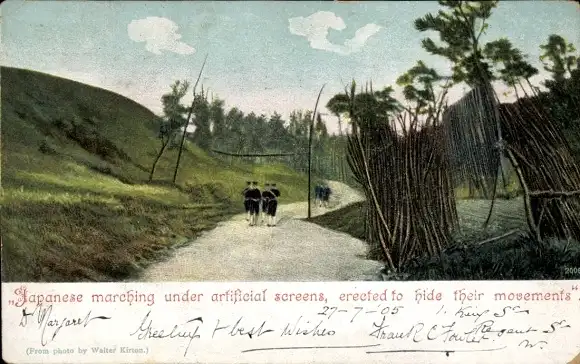 2006
"Japanese marching under artificial screens, erected to hide their movements"
27-7-05 1. King St
Dr Margaret Greetings + best wishes Frank C Fowler Regent St
(From photo by Walter Kirton.) W.